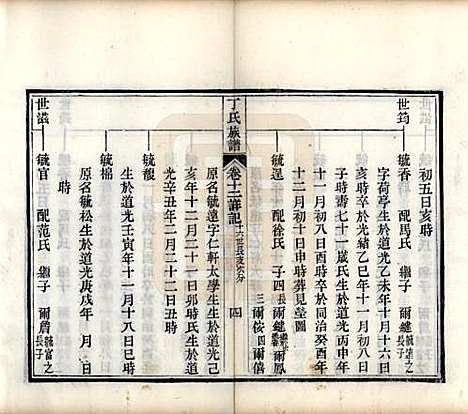 初五日亥時
世筠
毓香 配馬氏 繼子 爾鍵毓𤲞之長子
字荷亭生於道光乙未年十月十六日
亥時卒於光緒乙巳年十一月初八日
子時壽七十一歲氏生於道光丙申年
十一月初八日亥時卒於同治癸酉年
十二月初十日申時葬見塋圖
毓𤲞 配徐氏 子四 長爾鍵繼毓香 次爾鳳
三爾侒 四爾僖
原名毓遠字仁軒太學生生於道光己
亥年十二月二十一日卯時氏生於道
光辛丑年二月二十二日丑時
丁氏族譜
卷十三詳記
十六世長支長分
四
毓馥
毓棉
生於道光壬寅年十一月十八日巳時
原名毓松生於道光庚戌年 月 日
時
世謐
毓官 配范氏 繼子 爾詹毓富之長子